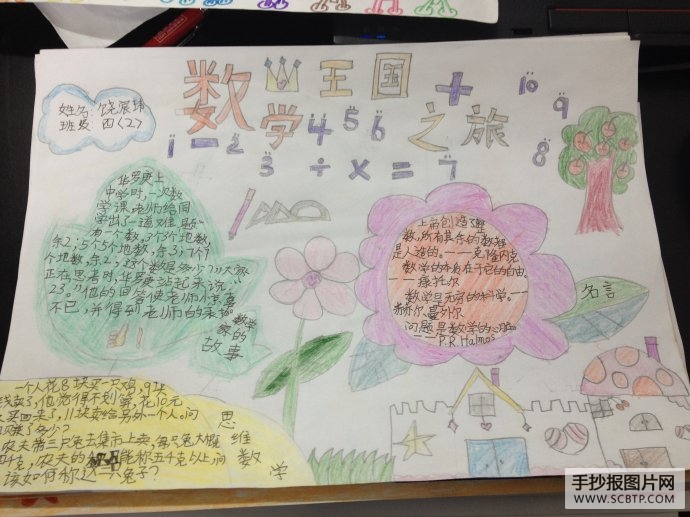 数学王国之旅
姓名:饶宸
班级 四(2)
1 2 3 4 5 6 7 8 9 10
+ - ÷ × =
华罗庚上
中学时,一次数
学课,老师给同
学出了一道难题“
有一个数,3个3个地数,
余2;5个5个地数,余3;7个7
个地数,余2;这个数是多少?”大家
正在思考时,华罗庚站起来说:“
23。”他的回答使老师
不已,并得到老师的表扬。
数学
家的
故事
上帝创造
数,所有其余的数都
是人造的。——克隆内克
数学的本质在于它的自由。
——康托尔
数学是无穷的科学。——
赫尔曼外尔
问题是数学的心脏
——P.R.Halmos
名言
一个人花8块买一只鸡,9块
卖了,他觉得不划算,花10元
买回来了,11块卖给另外一个人,问
他赚了多少?
农夫带三只兔去集市上卖,每只兔大概
千克,农夫的 能称五千克以上,问
该如何称这三只兔子?
思
维
数
学
手抄报图片网
WWW.SCBTP.COM